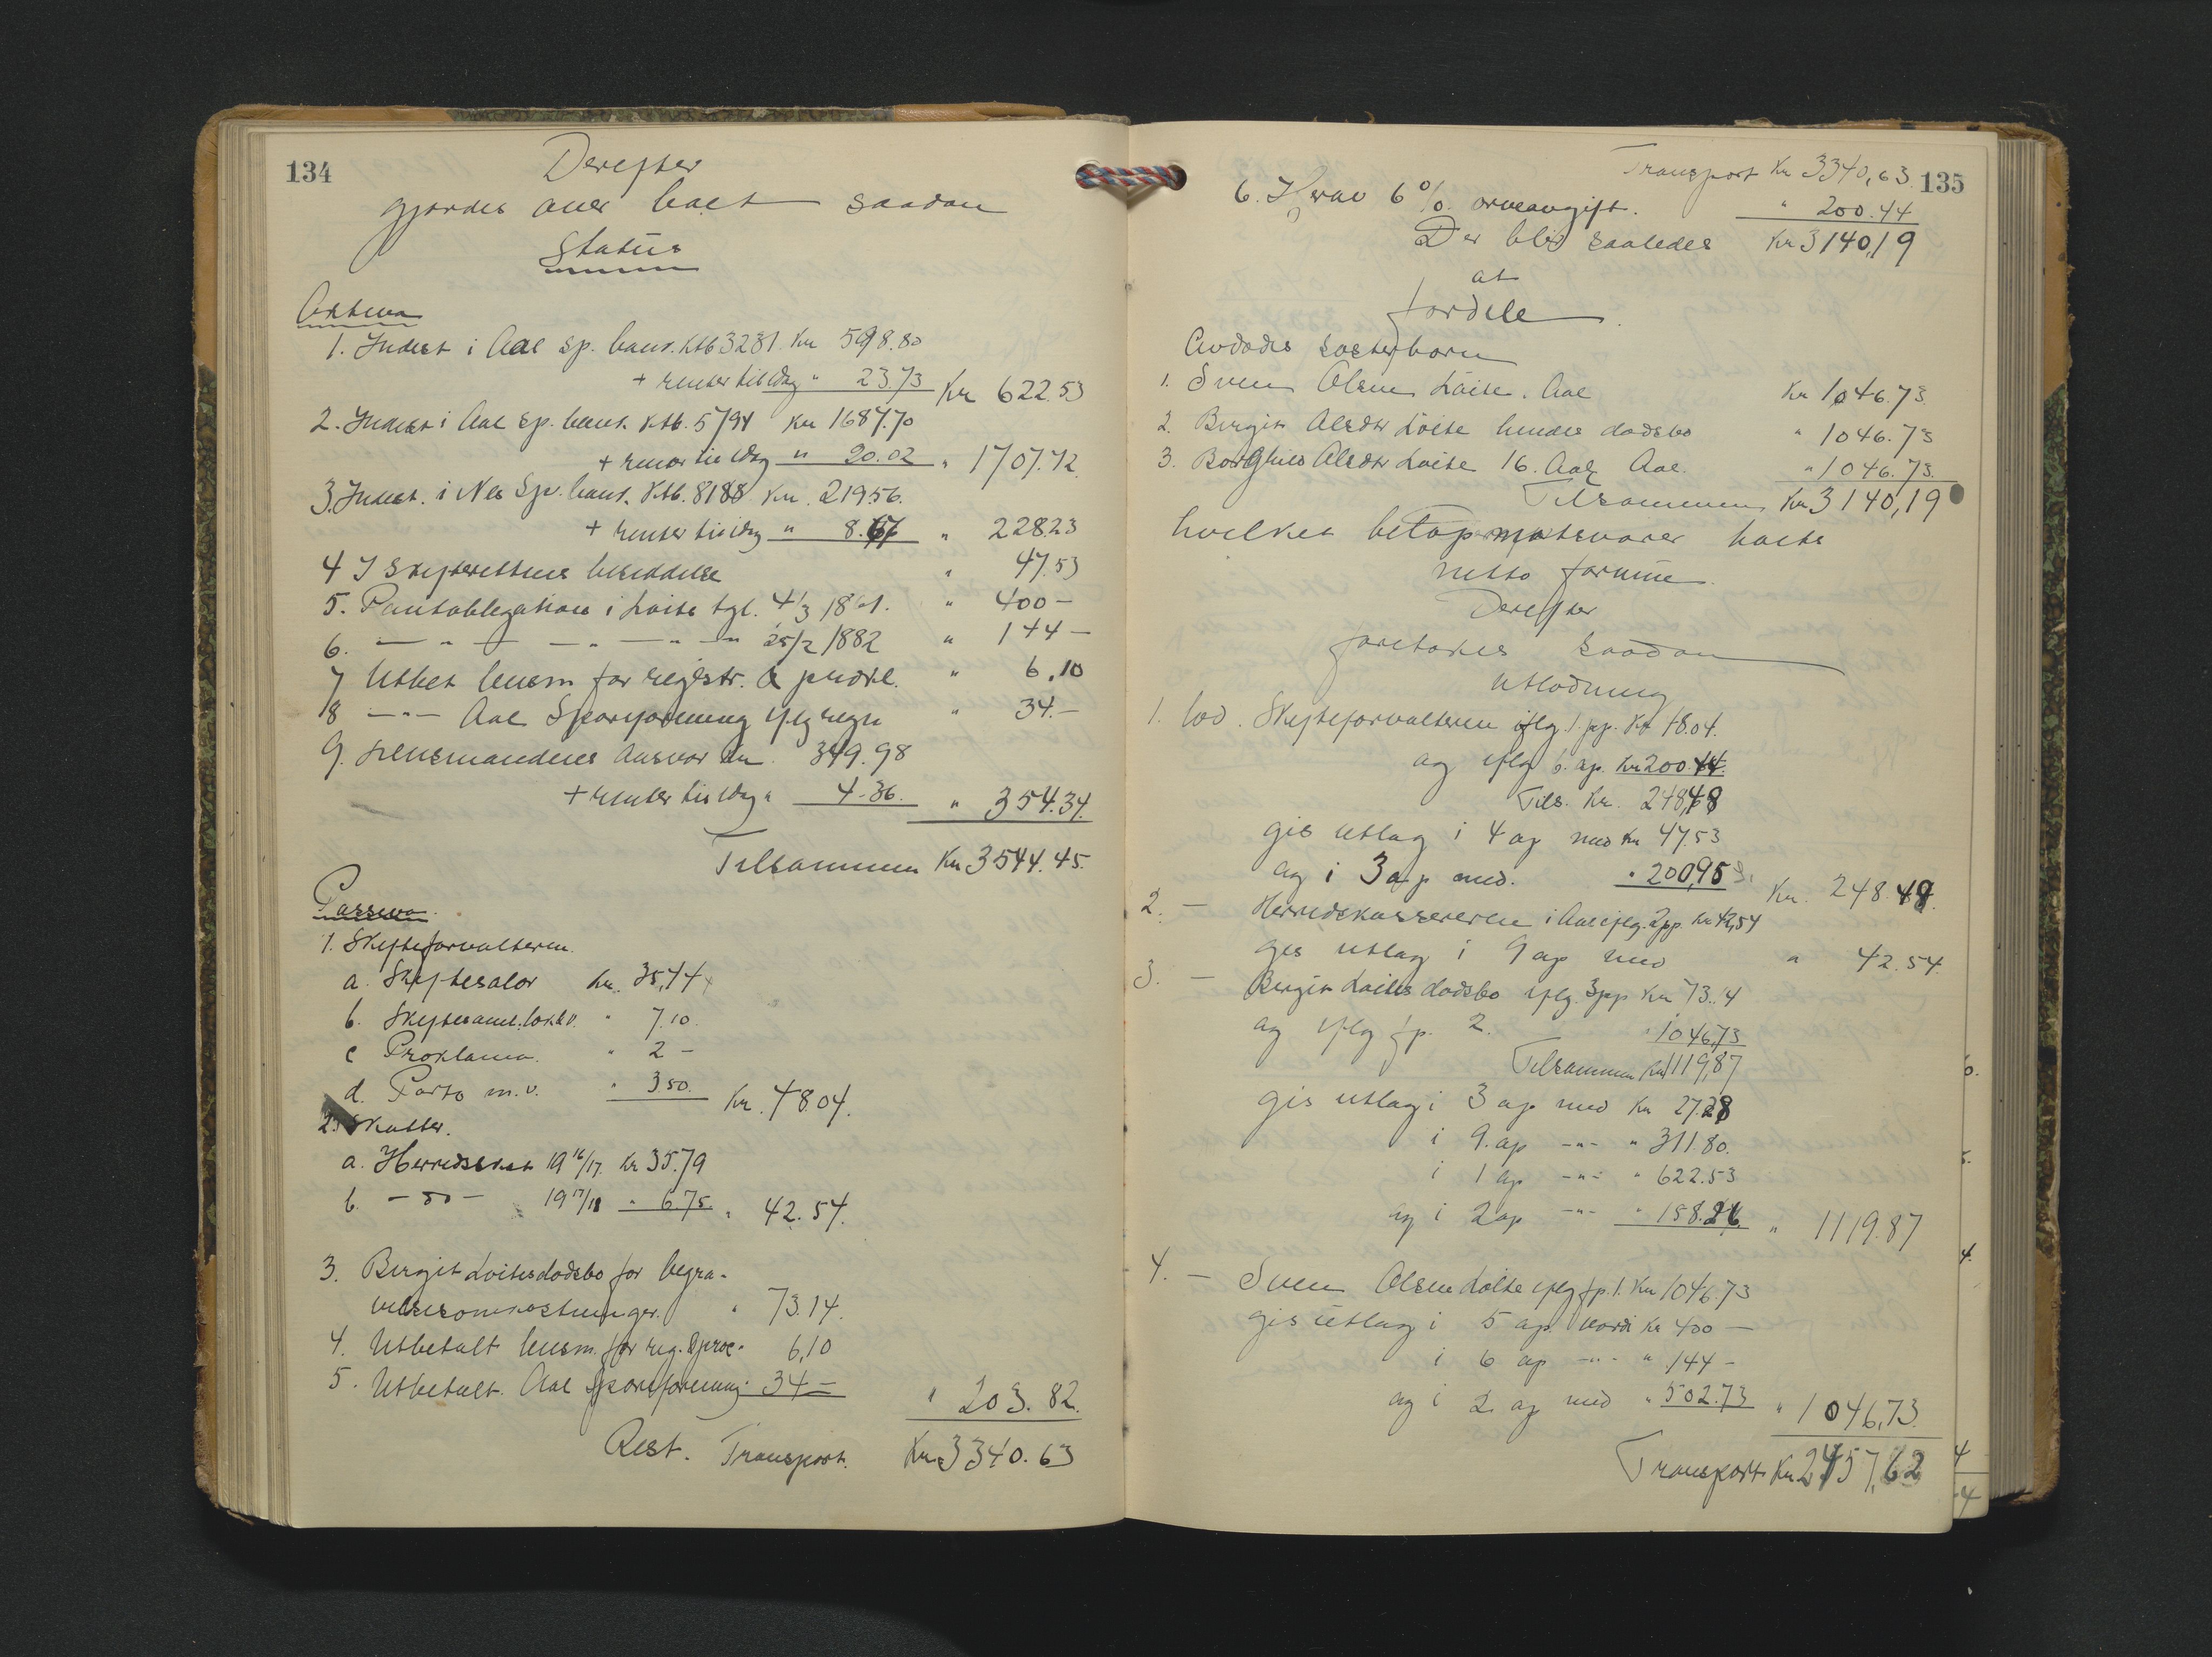 134
Derefter
gjordes over boet saadan
Status
Aktiva
1. Indest i Aal sp. bank. Ktb 3231 Kr 598.80
+ renter til idag " 23.73 Kr 622.53
2. Indest i Aal sp. bank Ktb. 5794 Kr 1687.70
+ renter til idag " 20.02 " 1707.72
3. Indest. i Nes Sp. bank. Ktb. 8188 Kr. 219.56.
+ renter til idag " 8.67 " 228.23
4 I Skifterettens besiddelse " 47.53
5. Pantobligation i Løite tgl. 4/3 18 1. " 400 –
6. — " — — " — " — 25/2 1882 " 144 –
7 Utbet lensm for registr. & prokl. " 6.10
8 — " — Aal Spareforening iflg regn " 34.–
9. Lensmandens ansvar Kr. 349.98
+ renter til idag " 4.36. " 354.34.
Tilsammen Kr 3544.45.
Passiva.
1. Skifteforvalteren.
a. Skiftesalær Kr. 35,44
b. Skiftesaml. " 7.10.
c Proklama. " 2 –
d. Porto m.v. " 3.50. Kr. 48.04.
2. Skatter.
a. Herredsskat 19 16/17. Kr 35.79
b. – do – 19 17/18 " 6.75. " 42.54.
3. Birgit Løites dødsbo for begra-
velsesomkostninger. " 73.14.
4. Utbetalt lensm. for reg. & proc. " 6,10
5. Utbetalt. Aal Spareforening 34 –
" 203.82.
Rest. Transport. Kr. 3340.63
135
Transport Kr 3340,63.
6. Krav 6 % arveavgift. " 200.44
Der blir saaledes Kr 3140,19
at
fordele.
Avdødes søsterbørn
1. Sven Olsen Løite. Aal Kr 1046.73.
2. Birgit Olsdtr Løite hendes dødsbo " 1046.73
3. Borghild Olsdtr Løite 16. Aal. " 1046.73.
Tilsammen Kr 3140,19
hvilket beløp motsvarer boets
netto formue.
Derefter
foretokes saadan
Utlodning
1. lod. Skifteforvalteren iflg. 1. pp. Kr 48.04.
og iflg 6. ap. Kr 200.44.
Tils. Kr. 248,48
gis utlæg i 4 ap med Kr 47.53
og i 3 ap med. " 200,95 Kr. 248.48.
2. – Herredskassereren i Aal iflg. 2pp. Kr 42,54
gis utlæg i 9 ap med " 42.54
3. – Birgit Løites dødsbo iflg. 3pp Kr 73.14
og iflg fp. 2. " 1046,73
Tilsammen Kr 1119,87
gis utlæg i 3 ap med Kr 27.28
i 9. ap – " – " 311.80.
i 1 ap – " – " 622.53
og i 2 ap – " – " 158.26 " 1119.87
4. – Sven Olsen Løite iflg fp. 1. Kr 1046.73
gis utlæg i 5 ap. værdi Kr 400 –
i 6 ap – " – " 144 –
og i 2. ap med " 502.73 " 1046,73.
Transport Kr 2457,62